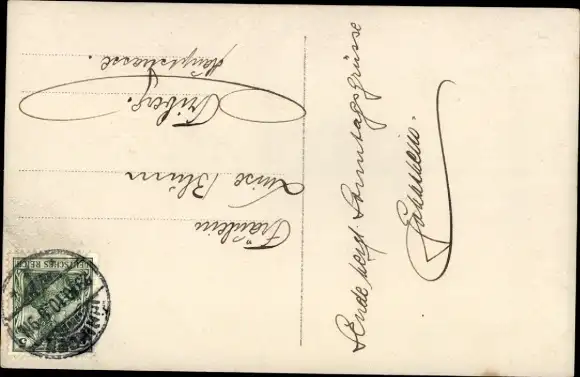 Fräulein
Luise Blum
Triberg.
Hauptstrasse.
Sende herzl. Sonntagsgrüsse
DEUTSCHES REICH
5